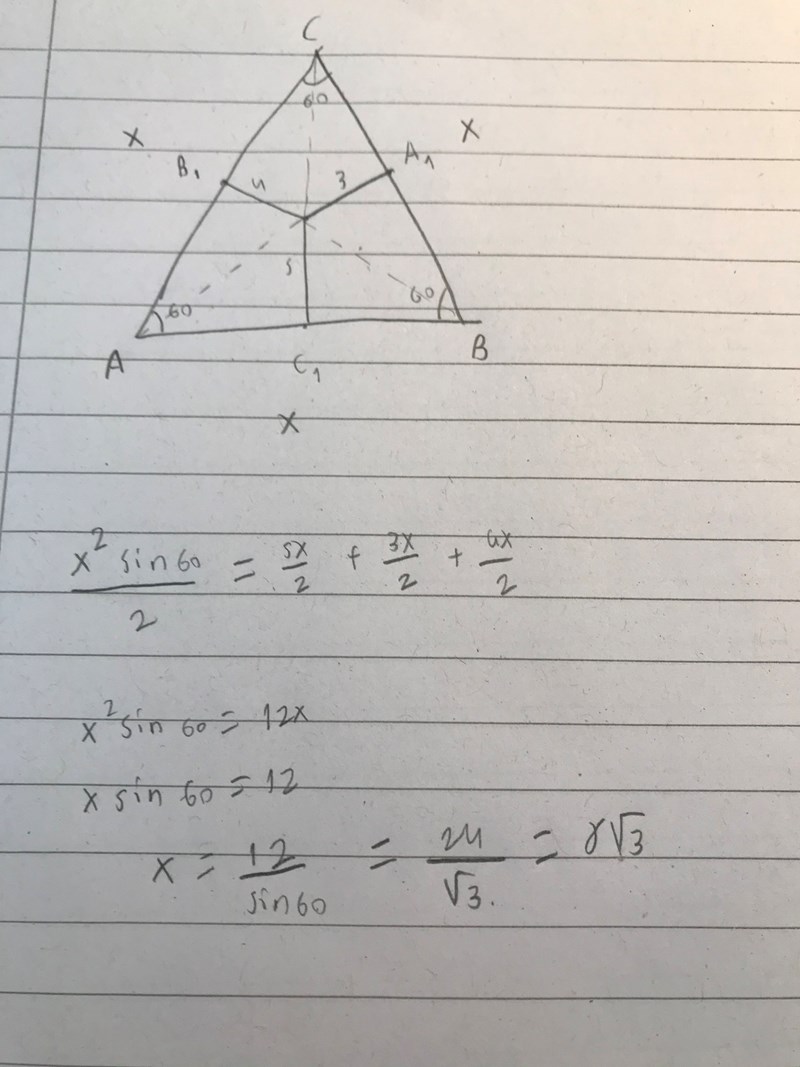 C
60
X
X
B₁
A₁
4
3
5
60
60
A
C₁
B
X
x² sin60 / 2 = 5x/2 + 3x/2 + 4x/2
x² sin 60 = 12x
x sin 60 = 12
x = 12/sin60 = 24/√3. = 8√3